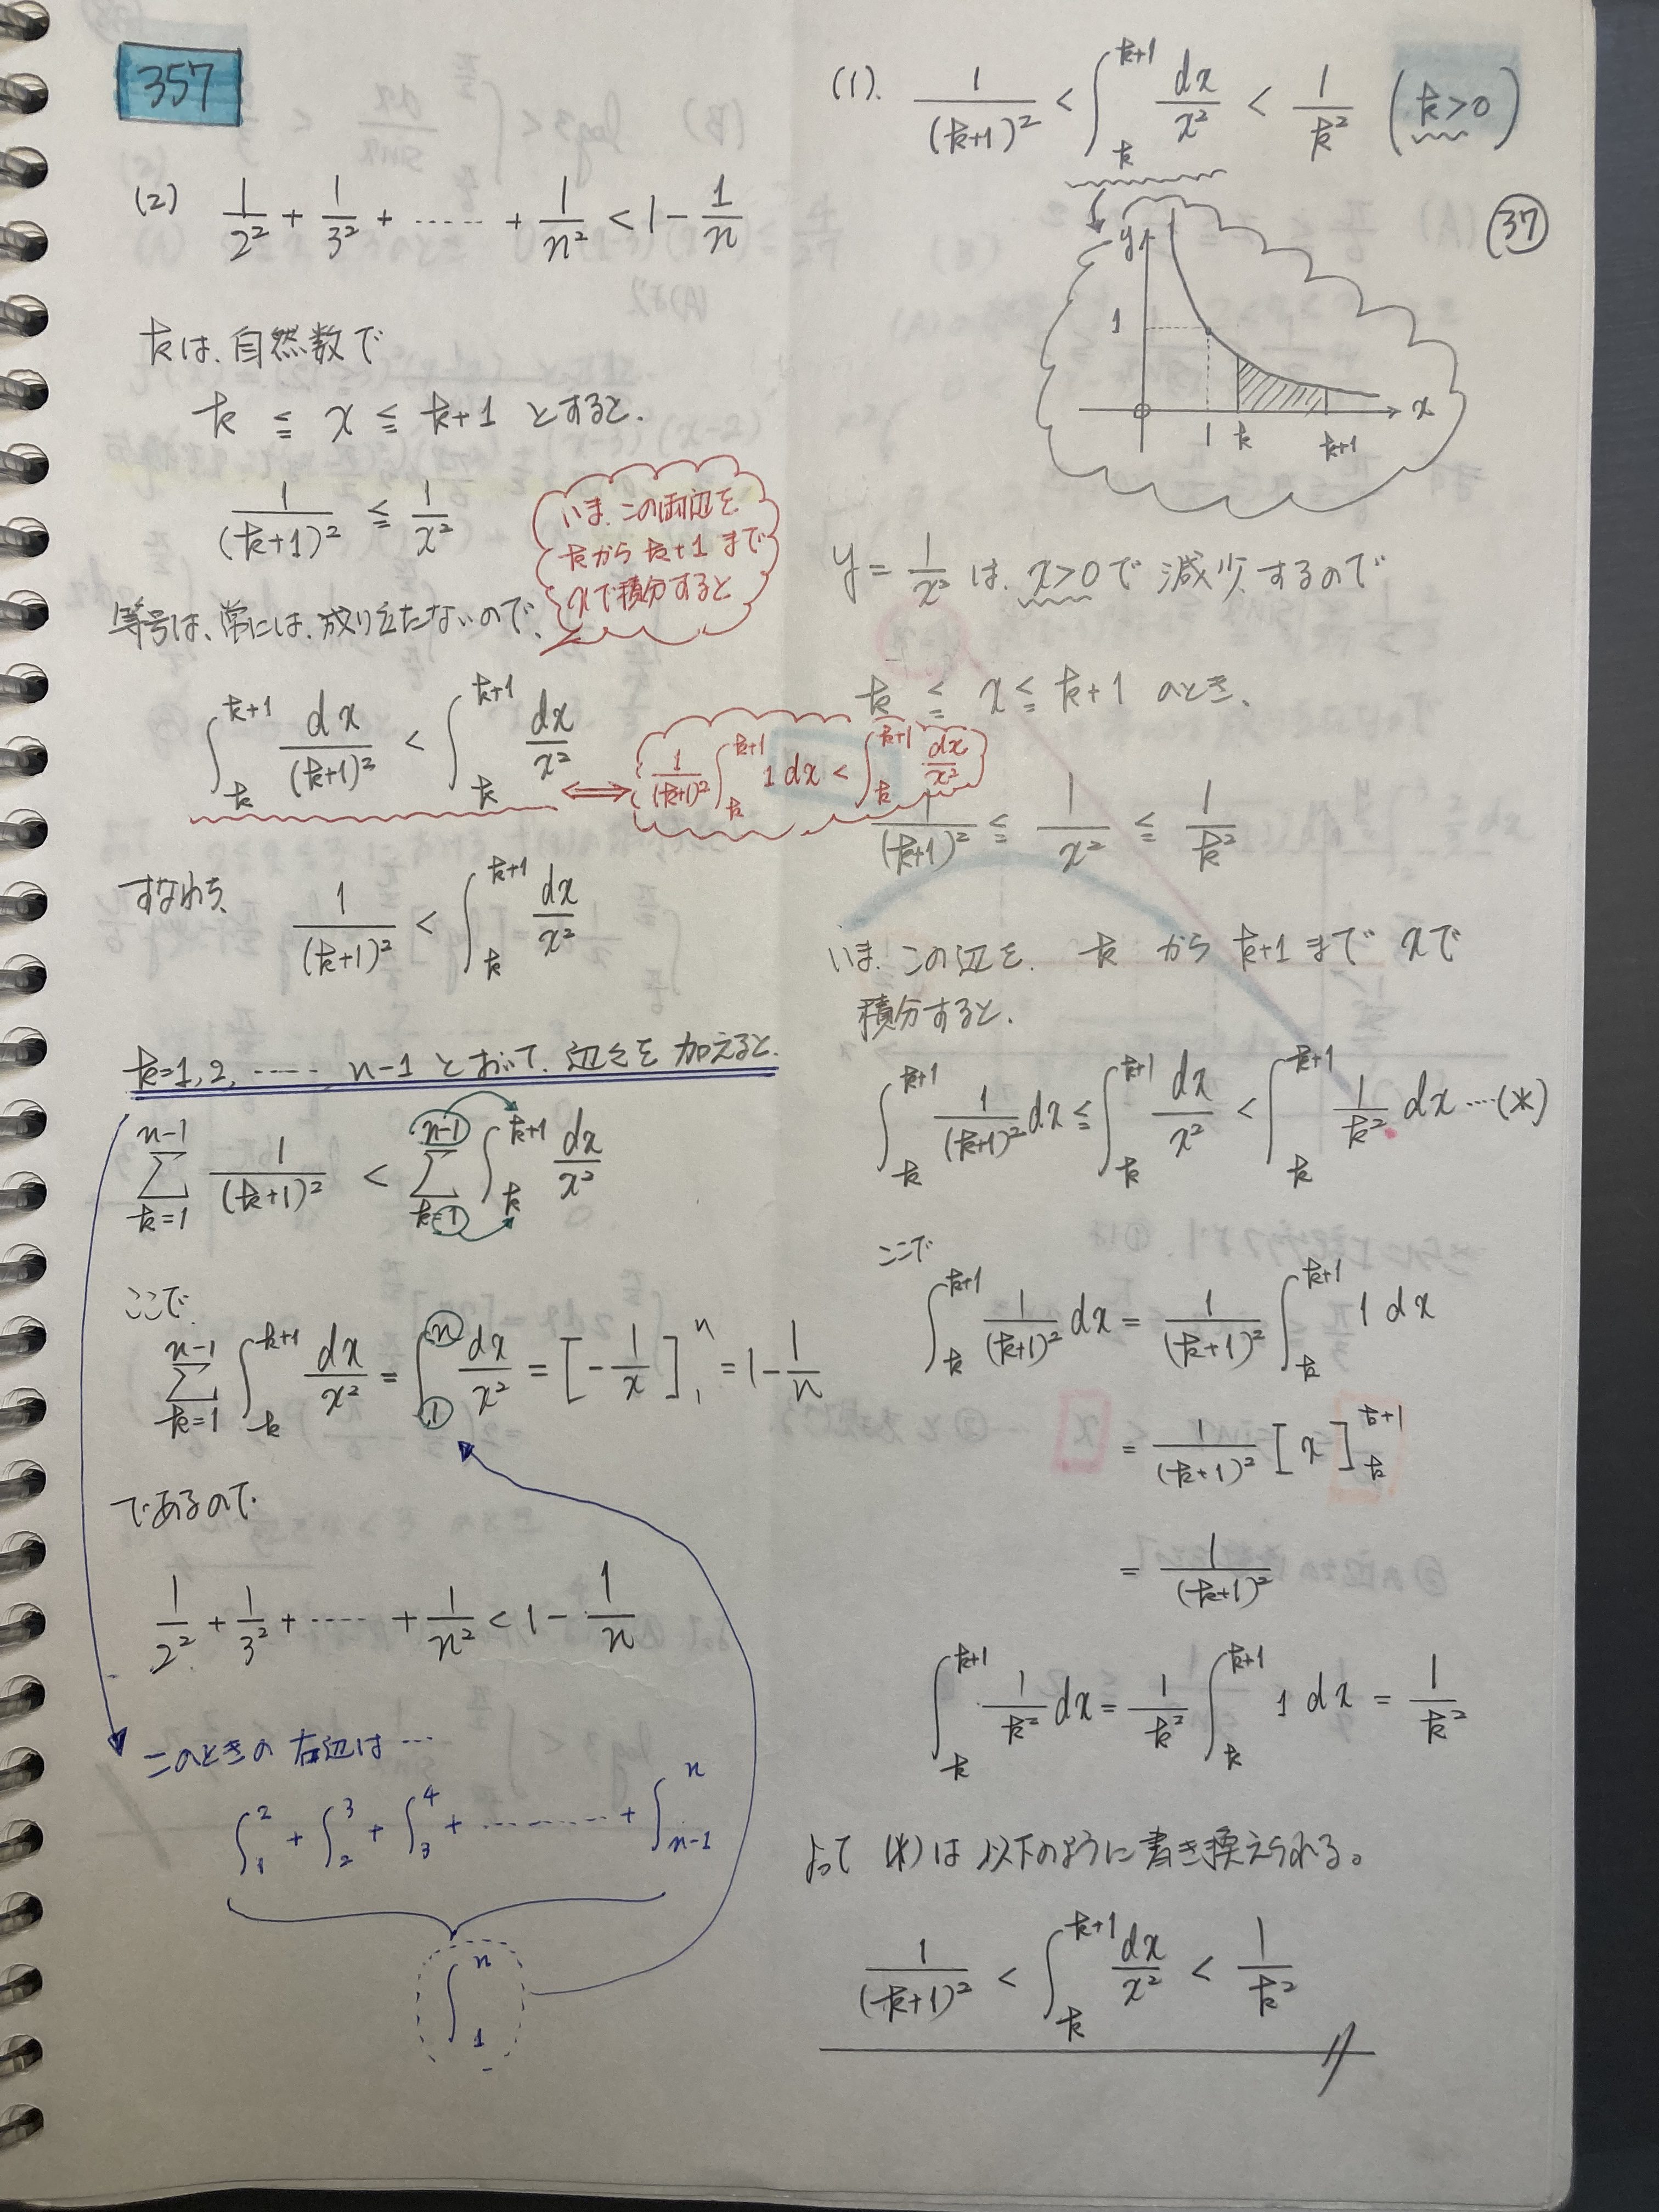 357
(2) 1/2² + 1/3² + …… + 1/n² < 1 - 1/n
kは、自然数で
k ≦ x ≦ k+1 とすると、
1/(k+1)² ≦ 1/x²
いま、この両辺を
kから k+1 まで
xで積分すると
等号は、常には、成り立たないので、
∫_k^{k+1} dx/(k+1)² < ∫_k^{k+1} dx/x²
⟺ 1/(k+1)² ∫_k^{k+1} 1 dx < ∫_k^{k+1} dx/x²
すなわち、 1/(k+1)² < ∫_k^{k+1} dx/x²
k=1, 2, …… n-1 とおいて、辺々を加えると、
Σ_{k=1}^{n-1} 1/(k+1)² < Σ_{k=1}^{n-1} ∫_k^{k+1} dx/x²
ここで、
Σ_{k=1}^{n-1} ∫_k^{k+1} dx/x² = ∫_1^n dx/x² = [-1/x]_1^n = 1 - 1/n
であるので
1/2² + 1/3² + …… + 1/n² < 1 - 1/n
このときの右辺は…
∫_1^2 + ∫_2^3 + ∫_3^4 + ……… + ∫_{n-1}^n
∫_1^n
(1). 1/(k+1)² < ∫_k^{k+1} dx/x² < 1/k² (k>0)
37
y
1
O 1 k k+1 x
y = 1/x² は、x>0で 減少するので
k ≦ x ≦ k+1 のとき、
1/(k+1)² ≦ 1/x² ≦ 1/k²
いま、この辺を、k から k+1 まで xで
積分すると、
∫_k^{k+1} 1/(k+1)² dx ≦ ∫_k^{k+1} dx/x² < ∫_k^{k+1} 1/k² dx …(*)
ここで
∫_k^{k+1} 1/(k+1)² dx = 1/(k+1)² ∫_k^{k+1} 1 dx
= 1/(k+1)² [x]_k^{k+1}
= 1/(k+1)²
∫_k^{k+1} 1/k² dx = 1/k² ∫_k^{k+1} 1 dx = 1/k²
よって (*)は 以下のように書き換えられる。
1/(k+1)² < ∫_k^{k+1} dx/x² < 1/k²